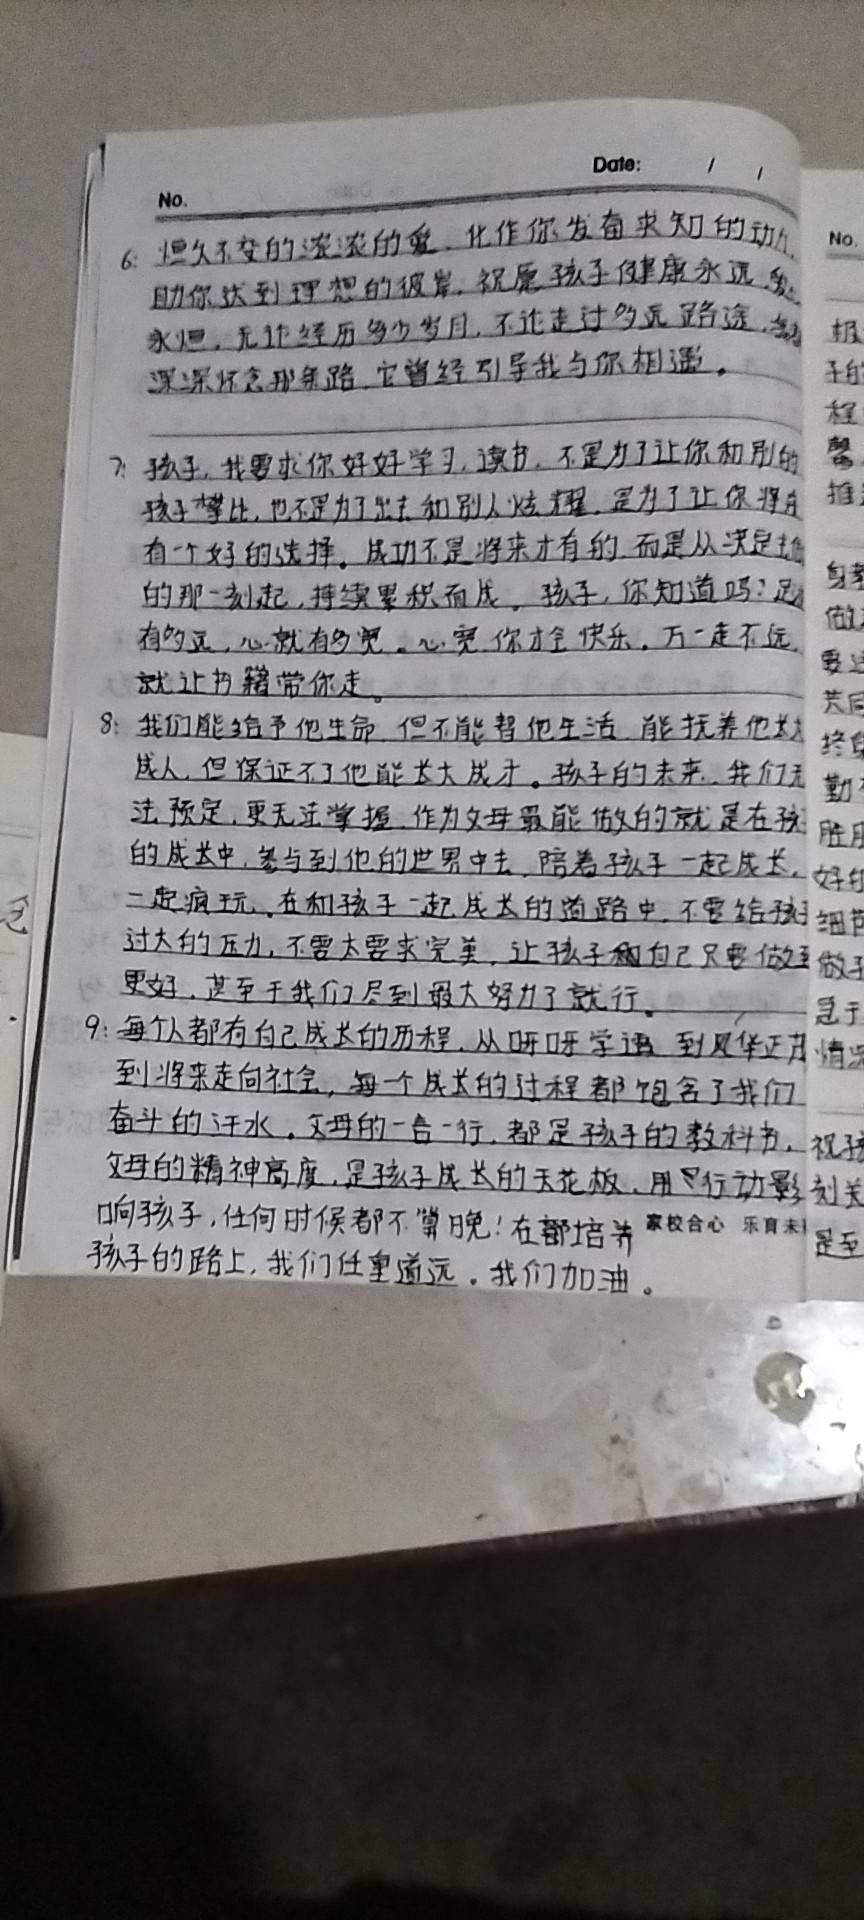 No.
Date: / /
6: 恒久不变的浓浓的爱、化作你发奋求知的动力,
助你达到理想的彼岸.祝愿孩子健康永远.
永恒.无论经历多少岁月.不论走过多远路途.
深深怀念那条路.它曾经引导我与你相遇。
7: 孩子,我要求你好好学习,读书.不是为了让你和别的
孩子攀比,也不是为了出去和别人炫耀.是为了让你将来
有一个好的选择。成功不是将来才有的.而是从决定去做
的那一刻起,持续累积而成。孩子,你知道吗?足
有多远,心就有多宽。心宽你才会快乐.万一走不远
就让书籍带你走。
8: 我们能给予他生命.但不能替他生活.能抚养他长大
成人.但保证不了他能长大成才。孩子的未来.我们无
法预定,更无法掌握.作为父母最能做的就是在孩
的成长中.参与到他的世界中去,陪着孩子一起成长,
一起疯玩.在和孩子一起成长的道路中.不要给孩子
过大的压力,不要太要求完美.让孩子和自己只要做到
更好.甚至于我们尽到最大努力了就行。
9: 每个人都有自己成长的历程.从呀呀学语 到风华正茂
到将来走向社会,每一个成长的过程都饱含了我们
奋斗的汗水.父母的一言一行.都是孩子的教科书,
父母的精神高度.是孩子成长的天花板.用行动影
响孩子,任何时候都不算晚!在部培养
家校合心 乐育未
孩子的路上,我们任重道远.我们加油。
No.
程
馨
做
要
共同
终身
勤
胜
好的
细节
做子
急于
情况
祝孩
刻关
是至